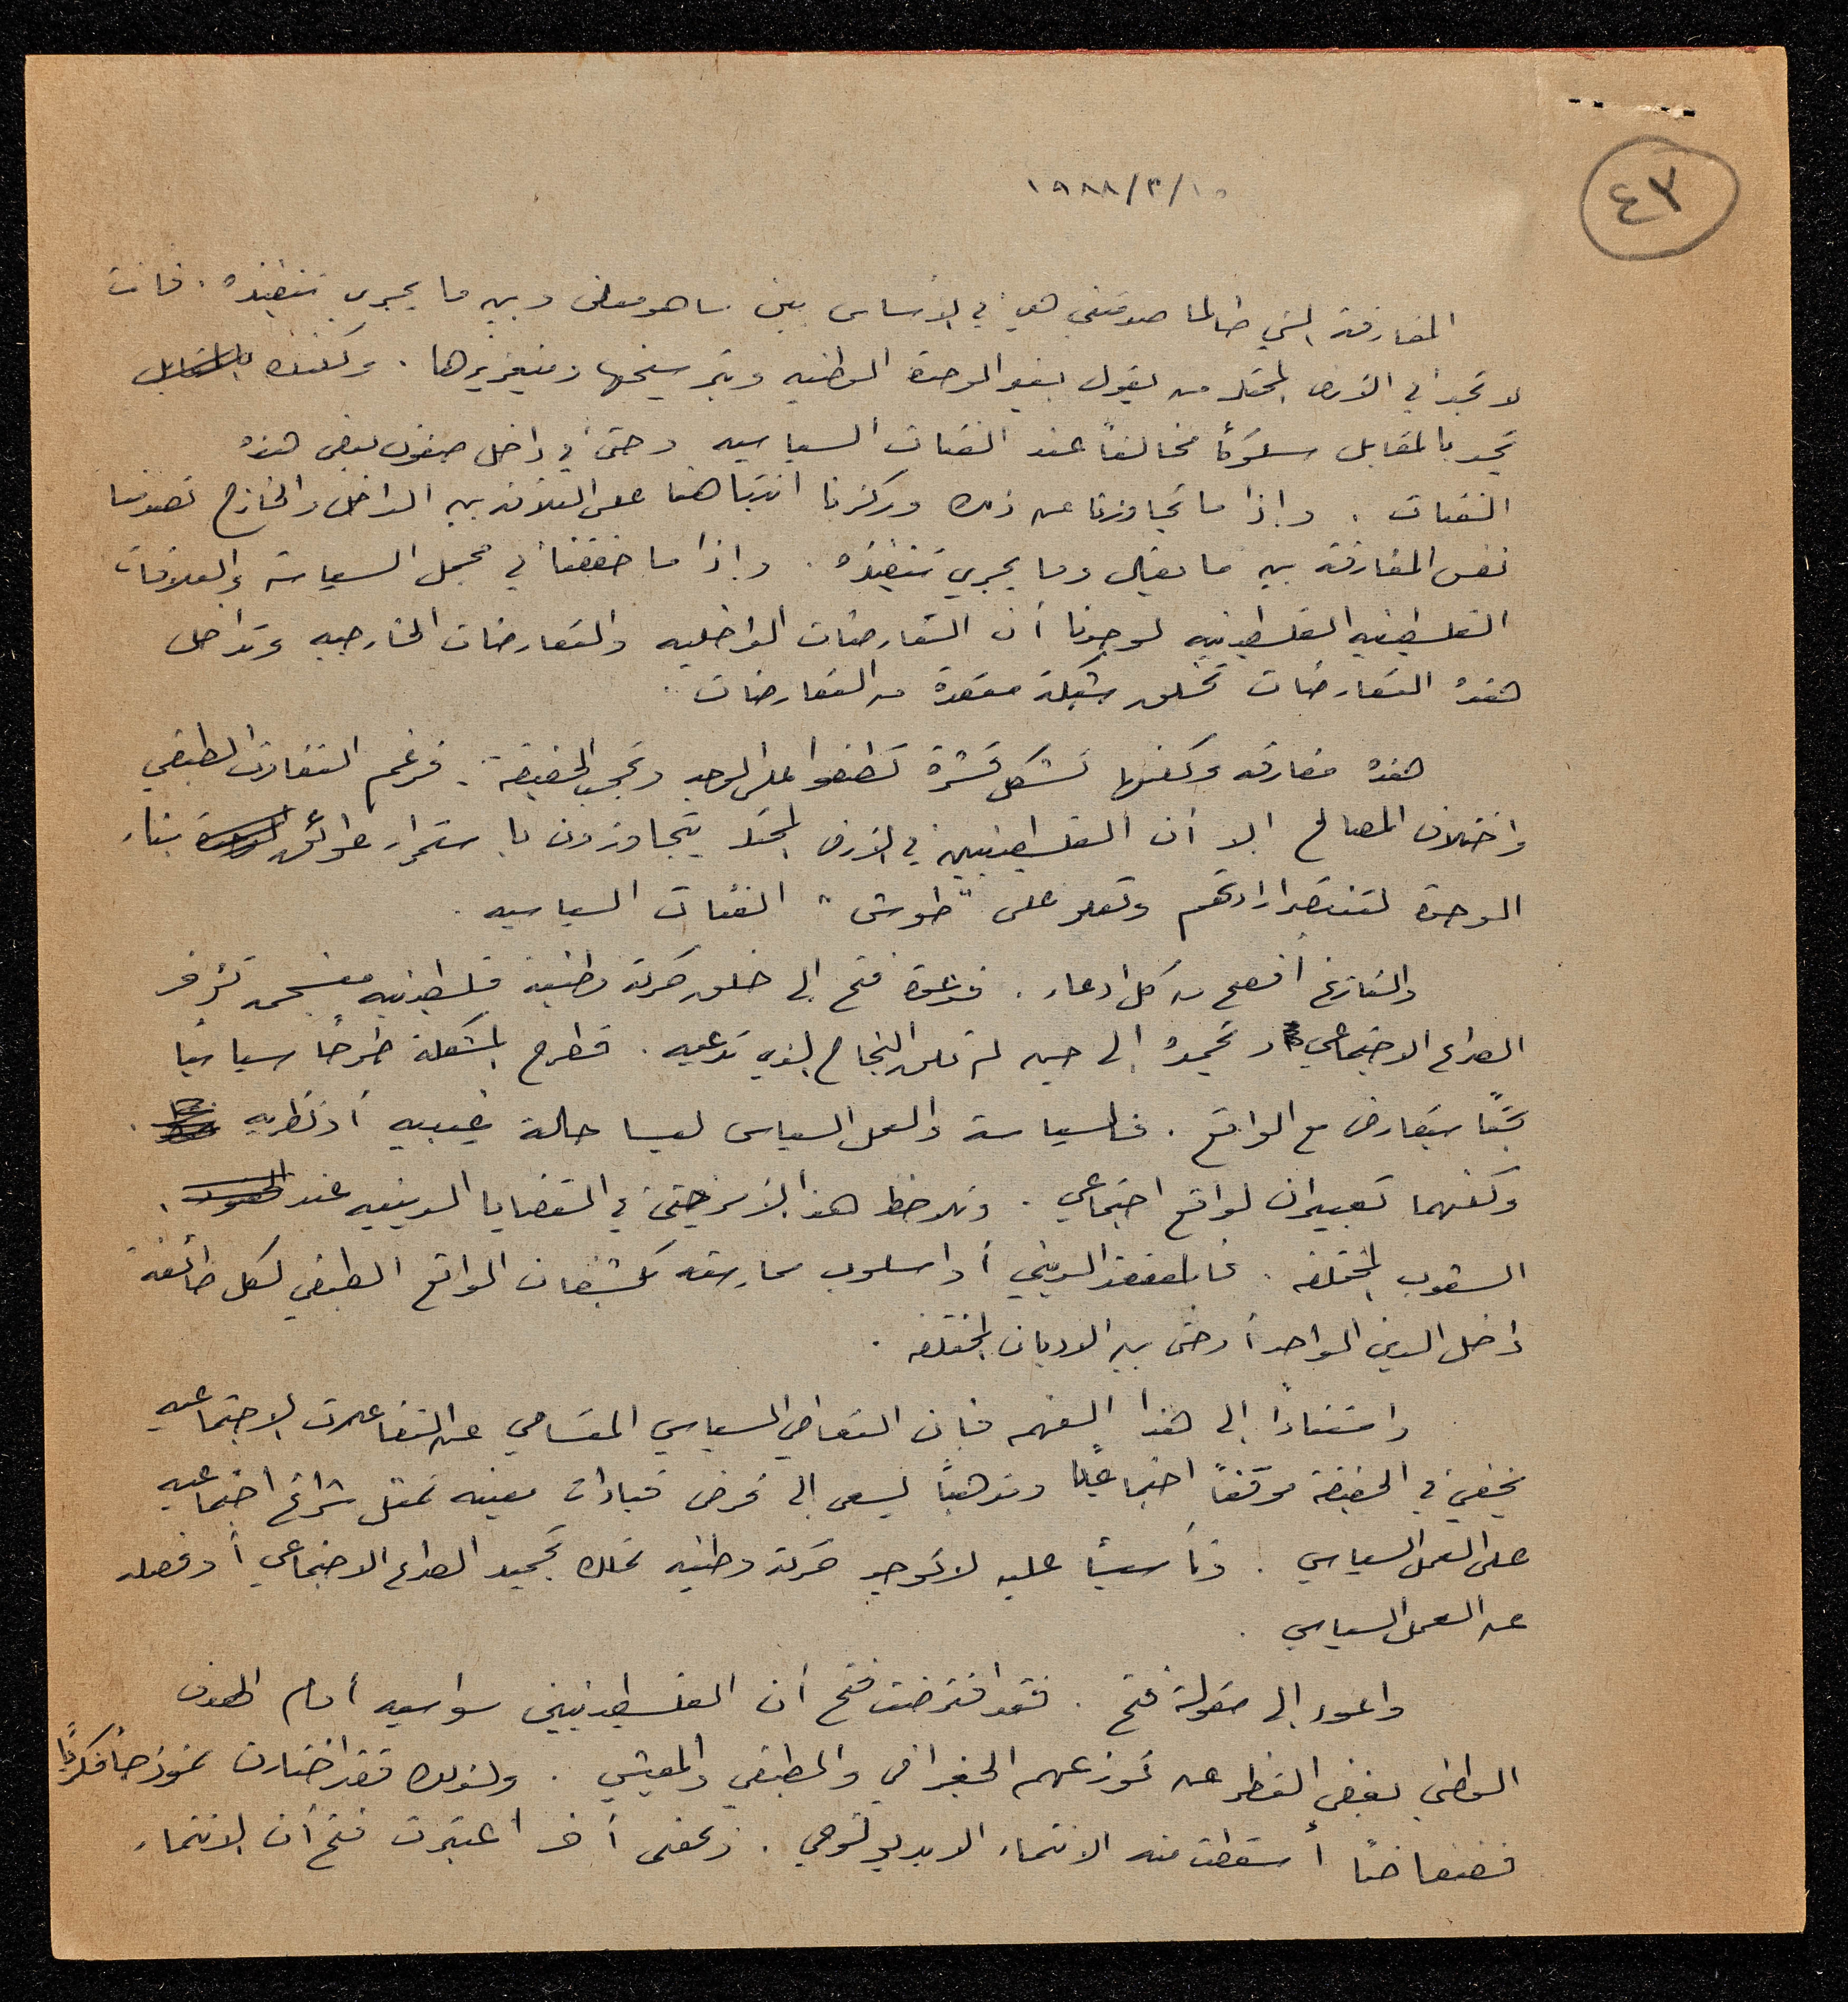 ٤٧
١٩٨٨/٣/١٥
المفارقة التي طالما صدمتني هي في الأساس بين ما هو معلن وبين ما يجري تنفيذه. فأنت
لا تجد في الأرض المحتلة من يقول بغير الوحدة الوطنية وبترسيخها وبتعزيزها. ولكنك بالمقابل
تجد بالمقابل سلوكاً مخالفاً عند الفئات السياسية وحتى في داخل صفوف بعض هذه
الفئات. وإذا ما تجاوزنا عن ذلك وركزنا انتباهنا على العلاقة بين الداخل والخارج تصدمنا
نفس المفارقة بين ما يقال وما يجري تنفيذه. وإذا ما حققنا في مجمل السياسة والعلاقات
الفلسطينية الفلسطينية لوجدنا أن التعارضات الداخلية والتعارضات الخارجية وتداخل
هذه التعارضات تخلق شبكة معقدة من التعارضات.
هذه مفارقة ولكنها تشكل قشرة تطفو على الوجه وتحجب الحقيقة. فرغم التفاوت الطبقي
واختلاف المصالح إلا أن الفلسطينيين في الأرض المحتلة يتجاوزون باستمرار عوائق بناء
الوحدة لتنتصر ارادتهم وتعلو على "طوش" الفئات السياسية.
والتاريخ أفصح من كل ادعاء. فدعوة فتح إلى خلق حركة وطنية فلسطينية منسجمة تؤخر
الصراع الاجتماعي وتجمده إلى حين لم تلق النجاح الذي تدعيه. فطرح المشكلة طرحاً سياسياً
بحتاً يتعارض مع الواقع. فالسياسة والعمل السياسي ليسا حالة غيبية أو نظرية
ولكنهما تعبيران لواقع اجتماعي. ونلاحظ هذا الأمر حتى في القضايا الدينية عند
الشعوب المختلفة. فالمعتقد الديني أو اسلوب ممارسته يكشفان الواقع الطبقي لكل طائفة
داخل الدين الواحد أو حتى بين الاديان المختلفة.
واستناداً إلى هذا الفهم فإن التعاطي السياسي المتسامي عن التفاعلات الاجتماعية
يخفي في الحقيقة موقفاً اجتماعياً ومذهباً يسعى إلى فرض قيادات معينة تمثل شرائح اجتماعية
على العمل السياسي. وتأسيساً عليه لا توجد حركة وطنية تملك تجميد الصراع الاجتماعي أو فصله
عن العمل السياسي.
واعود إلى مقولة فتح. فقد افترضت فتح أن الفلسطينيين سواسية أمام الهدف
الوطني بغض النظر عن توزعهم الجغرافي والطبقي والمعيشي. ولذلك فقد اختارت نموذجاً فكرياً
فضفاضاً أسقطت منه الانتماء الايديولوجي. وبمعنى آخر اعتبرت فتح أن الانتماء